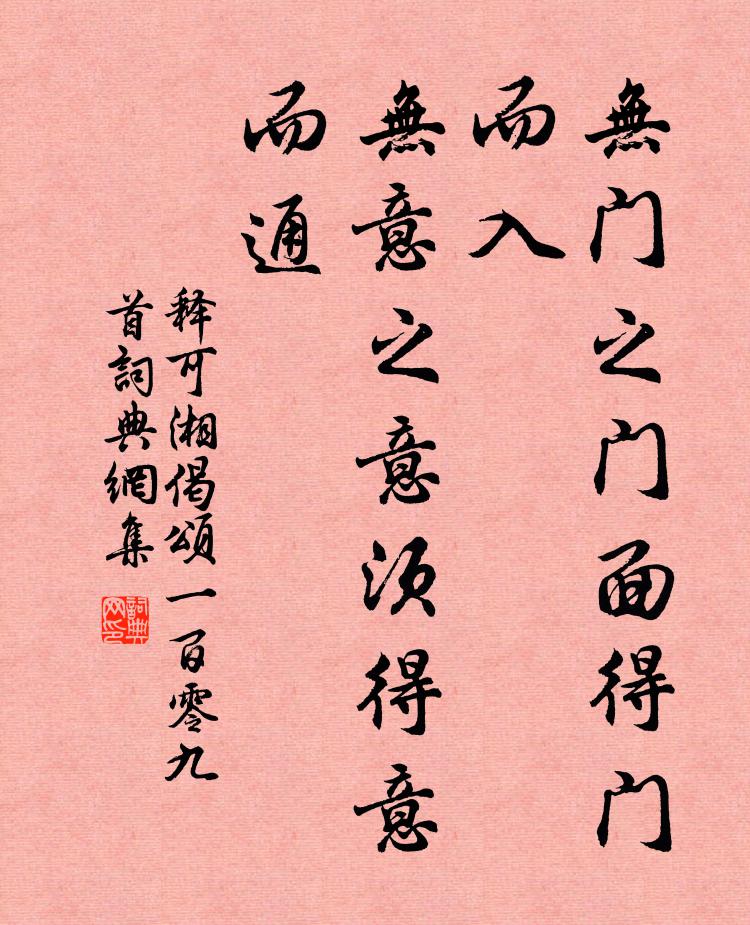 無门之门面得门
而入
無意之意须得意
而通
释可湘偈頌一百零九
首詞典網集
詞典
网印